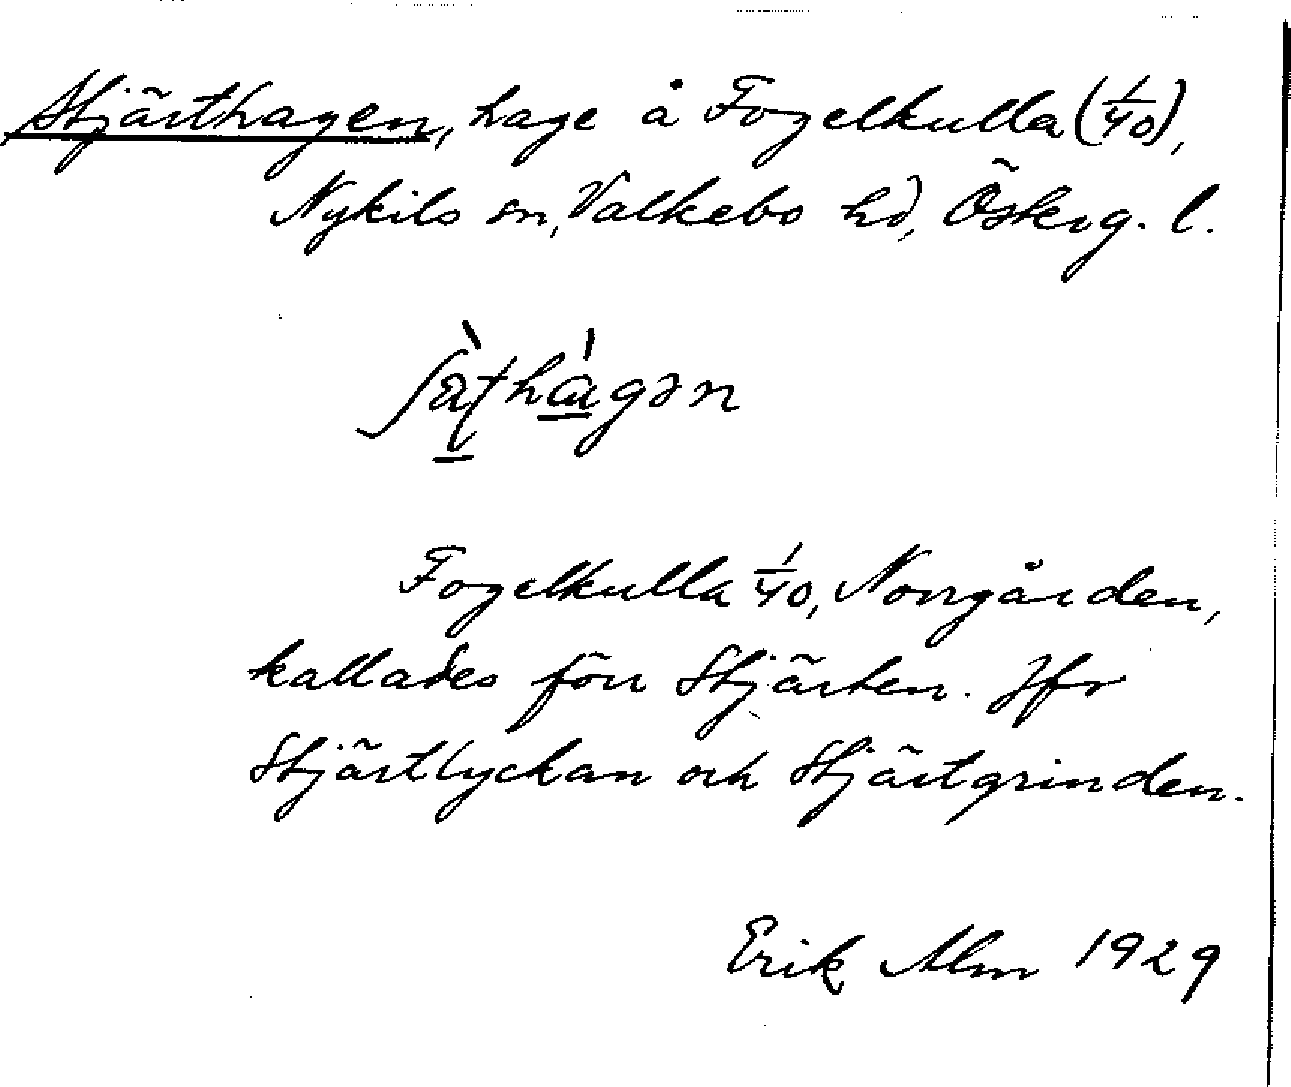 Stjärthagen, hage å Fogelkulla (1/40),
Nykils sn, Valkebo hd, Österg. l.
Fogelkulla 1/40, Norrgården,
kallades förr Stjärten. Jfr
Stjärtlyckan och Stjärtgrinden.
Erik Alm 1929